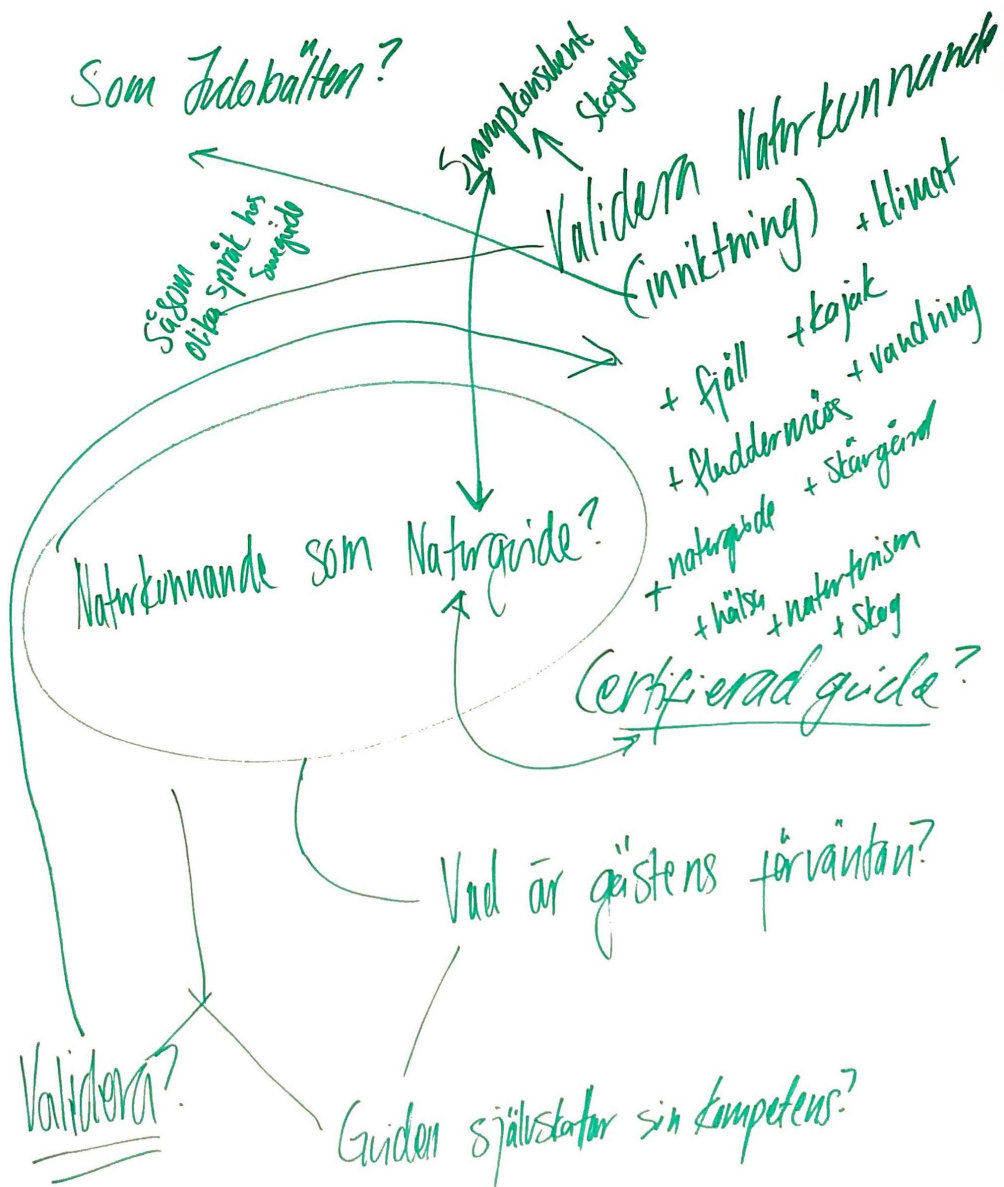 Som Judobälten?
Svampkonsulent
Skogsbad
Validera Naturkunnande
(inriktning) + klimat
Såsom
olika språk hos
Sweguide
+ fjäll + kajak
+ fladdermöss + vandring
+ naturguide + skärgård
+ hälsa + naturturism
+ skog
Naturkunnande som Naturguide?
Certifierad guide?
Vad är gästens förväntan?
Validera?
Guiden självskattar sin kompetens?